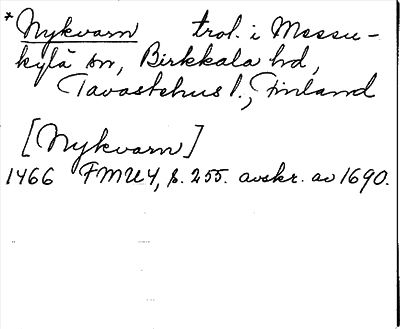 *Nykvarn trol. i Messu-
kylä sn, Birkkala hd,
Tavastehus l., Finland
[Nykvarn]
1466 FMU 4, s. 255. avskr. av 1690.